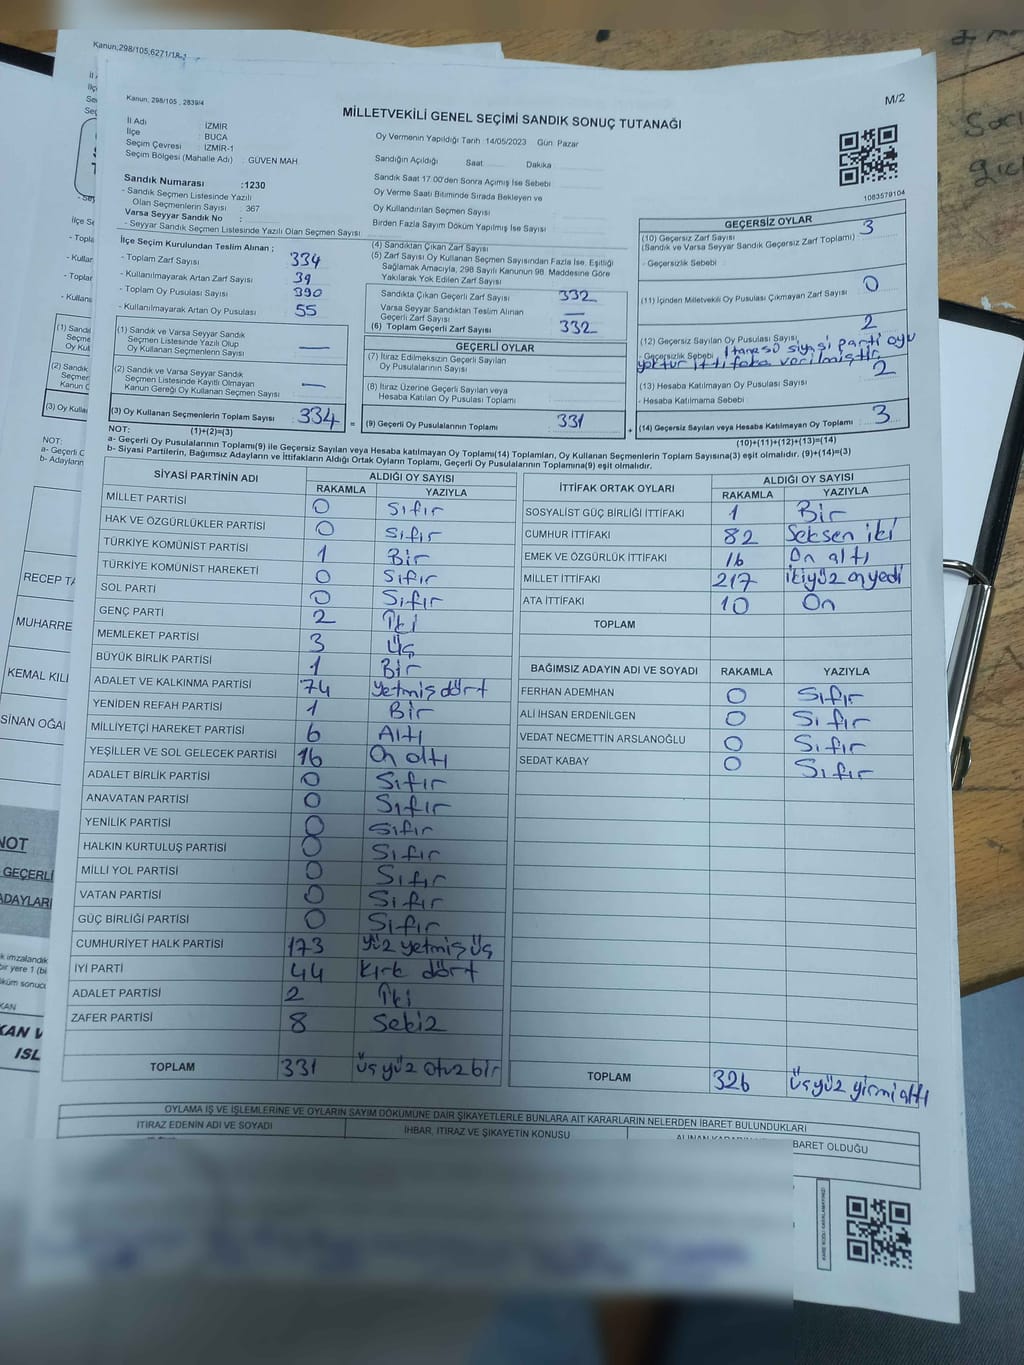 Kanun,298/105,6271/18-1
Kanun, 298/105 , 2839/4
M/2
MİLLETVEKİLİ GENEL SEÇİMİ SANDIK SONUÇ TUTANAĞI
İl Adı : İZMİR
İlçe : BUCA
Seçim Çevresi : İZMİR-1
Seçim Bölgesi (Mahalle Adı) : GÜVEN MAH
Oy Vermenin Yapıldığı Tarih 14/05/2023 Gün Pazar
Sandığın Açıldığı Saat Dakika
Sandık Saat 17.00'den Sonra Açılmış İse Sebebi
Oy Verme Saati Bitiminde Sırada Bekleyen ve
Oy Kullandırılan Seçmen Sayısı
Birden Fazla Sayım Döküm Yapılmış İse Sayısı
1083579104
Sandık Numarası :1230
- Sandık Seçmen Listesinde Yazılı
Olan Seçmenlerin Sayısı : 367
Varsa Seyyar Sandık No :
- Seyyar Sandık Seçmen Listesinde Yazılı Olan Seçmen Sayısı
İlçe Seçim Kurulundan Teslim Alınan ;
- Toplam Zarf Sayısı 334
- Kullanılmayarak Artan Zarf Sayısı 39
- Toplam Oy Pusulası Sayısı 390
- Kullanılmayarak Artan Oy Pusulası 55
(1) Sandık ve Varsa Seyyar Sandık
Seçmen Listesinde Yazılı Olup
Oy Kullanan Seçmenlerin Sayısı —
(2) Sandık ve Varsa Seyyar Sandık
Seçmen Listesinde Kayıtlı Olmayan
Kanun Gereği Oy Kullanan Seçmen Sayısı —
(3) Oy Kullanan Seçmenlerin Toplam Sayısı 334 =
(1)+(2)=(3)
(4) Sandıktan Çıkan Zarf Sayısı
(5) Zarf Sayısı Oy Kullanan Seçmen Sayısından Fazla İse, Eşitliği
Sağlamak Amacıyla, 298 Sayılı Kanunun 98. Maddesine Göre
Yakılarak Yok Edilen Zarf Sayısı
Sandıkta Çıkan Geçerli Zarf Sayısı 332
Varsa Seyyar Sandıktan Teslim Alınan
Geçerli Zarf Sayısı —
(6) Toplam Geçerli Zarf Sayısı 332
GEÇERLİ OYLAR
(7) İtiraz Edilmeksizin Geçerli Sayılan
Oy Pusulalarının Sayısı
(8) İtiraz Üzerine Geçerli Sayılan veya
Hesaba Katılan Oy Pusulası Toplamı
(9) Geçerli Oy Pusulalarının Toplamı 331 +
GEÇERSİZ OYLAR
(10) Geçersiz Zarf Sayısı 3
(Sandık ve Varsa Seyyar Sandık Geçersiz Zarf Toplamı)
- Geçersizlik Sebebi :
(11) İçinden Milletvekili Oy Pusulası Çıkmayan Zarf Sayısı 0
(12) Geçersiz Sayılan Oy Pusulası Sayısı 2
- Geçersizlik Sebebi 1 tanesü siyasi parti oyu
yoktur ittifaka verilmiştir
(13) Hesaba Katılmayan Oy Pusulası Sayısı 2
- Hesaba Katılmama Sebebi :
(14) Geçersiz Sayılan veya Hesaba Katılmayan Oy Toplamı 3
(10)+(11)+(12)+(13)=(14)
NOT:
a- Geçerli Oy Pusulalarının Toplamı(9) ile Geçersiz Sayılan veya Hesaba Katılmayan Oy Toplamı(14) Toplamları, Oy Kullanan Seçmenlerin Toplam Sayısına(3) eşit olmalıdır. (9)+(14)=(3)
b- Siyasi Partilerin, Bağımsız Adayların ve İttifakların Aldığı Ortak Oyların Toplamı, Geçerli Oy Pusulalarının Toplamına(9) eşit olmalıdır.
SİYASİ PARTİNİN ADI ALDIĞI OY SAYISI
RAKAMLA YAZIYLA
MİLLET PARTİSİ 0 Sıfır
HAK VE ÖZGÜRLÜKLER PARTİSİ 0 Sıfır
TÜRKİYE KOMÜNİST PARTİSİ 1 Bir
TÜRKİYE KOMÜNİST HAREKETİ 0 Sıfır
SOL PARTİ 0 Sıfır
GENÇ PARTİ 2 İki
MEMLEKET PARTİSİ 3 Üç
BÜYÜK BİRLİK PARTİSİ 1 Bir
ADALET VE KALKINMA PARTİSİ 74 yetmiş dört
YENİDEN REFAH PARTİSİ 1 Bir
MİLLİYETÇİ HAREKET PARTİSİ 6 Altı
YEŞİLLER VE SOL GELECEK PARTİSİ 16 On altı
ADALET BİRLİK PARTİSİ 0 Sıfır
ANAVATAN PARTİSİ 0 Sıfır
YENİLİK PARTİSİ 0 Sıfır
HALKIN KURTULUŞ PARTİSİ 0 Sıfır
MİLLİ YOL PARTİSİ 0 Sıfır
VATAN PARTİSİ 0 Sıfır
GÜÇ BİRLİĞİ PARTİSİ 0 Sıfır
CUMHURİYET HALK PARTİSİ 173 yüz yetmiş üç
İYİ PARTİ 44 kırk dört
ADALET PARTİSİ 2 İki
ZAFER PARTİSİ 8 Sekiz
TOPLAM 331 üçyüz otuz bir
İTTİFAK ORTAK OYLARI ALDIĞI OY SAYISI
RAKAMLA YAZIYLA
SOSYALİST GÜÇ BİRLİĞİ İTTİFAKI 1 Bir
CUMHUR İTTİFAKI 82 Seksen iki
EMEK VE ÖZGÜRLÜK İTTİFAKI 16 On altı
MİLLET İTTİFAKI 217 ikiyüz onyedi
ATA İTTİFAKI 10 On
TOPLAM
BAĞIMSIZ ADAYIN ADI VE SOYADI RAKAMLA YAZIYLA
FERHAN ADEMHAN 0 Sıfır
ALİ İHSAN ERDENİLGEN 0 Sıfır
VEDAT NECMETTİN ARSLANOĞLU 0 Sıfır
SEDAT KABAY 0 Sıfır
TOPLAM 326 üçyüz yirmi altı
OYLAMA İŞ VE İŞLEMLERİNE VE OYLARIN SAYIM DÖKÜMÜNE DAİR ŞİKAYETLERLE BUNLARA AİT KARARLARIN NELERDEN İBARET BULUNDUKLARI
İTİRAZ EDENİN ADI VE SOYADI
İHBAR, İTİRAZ VE ŞİKAYETİN KONUSU
BARET OLDUĞU
RECEP TA
MUHARRE
KEMAL KILI
SİNAN OĞA
NOT
GEÇERLİ
ADAYLARI